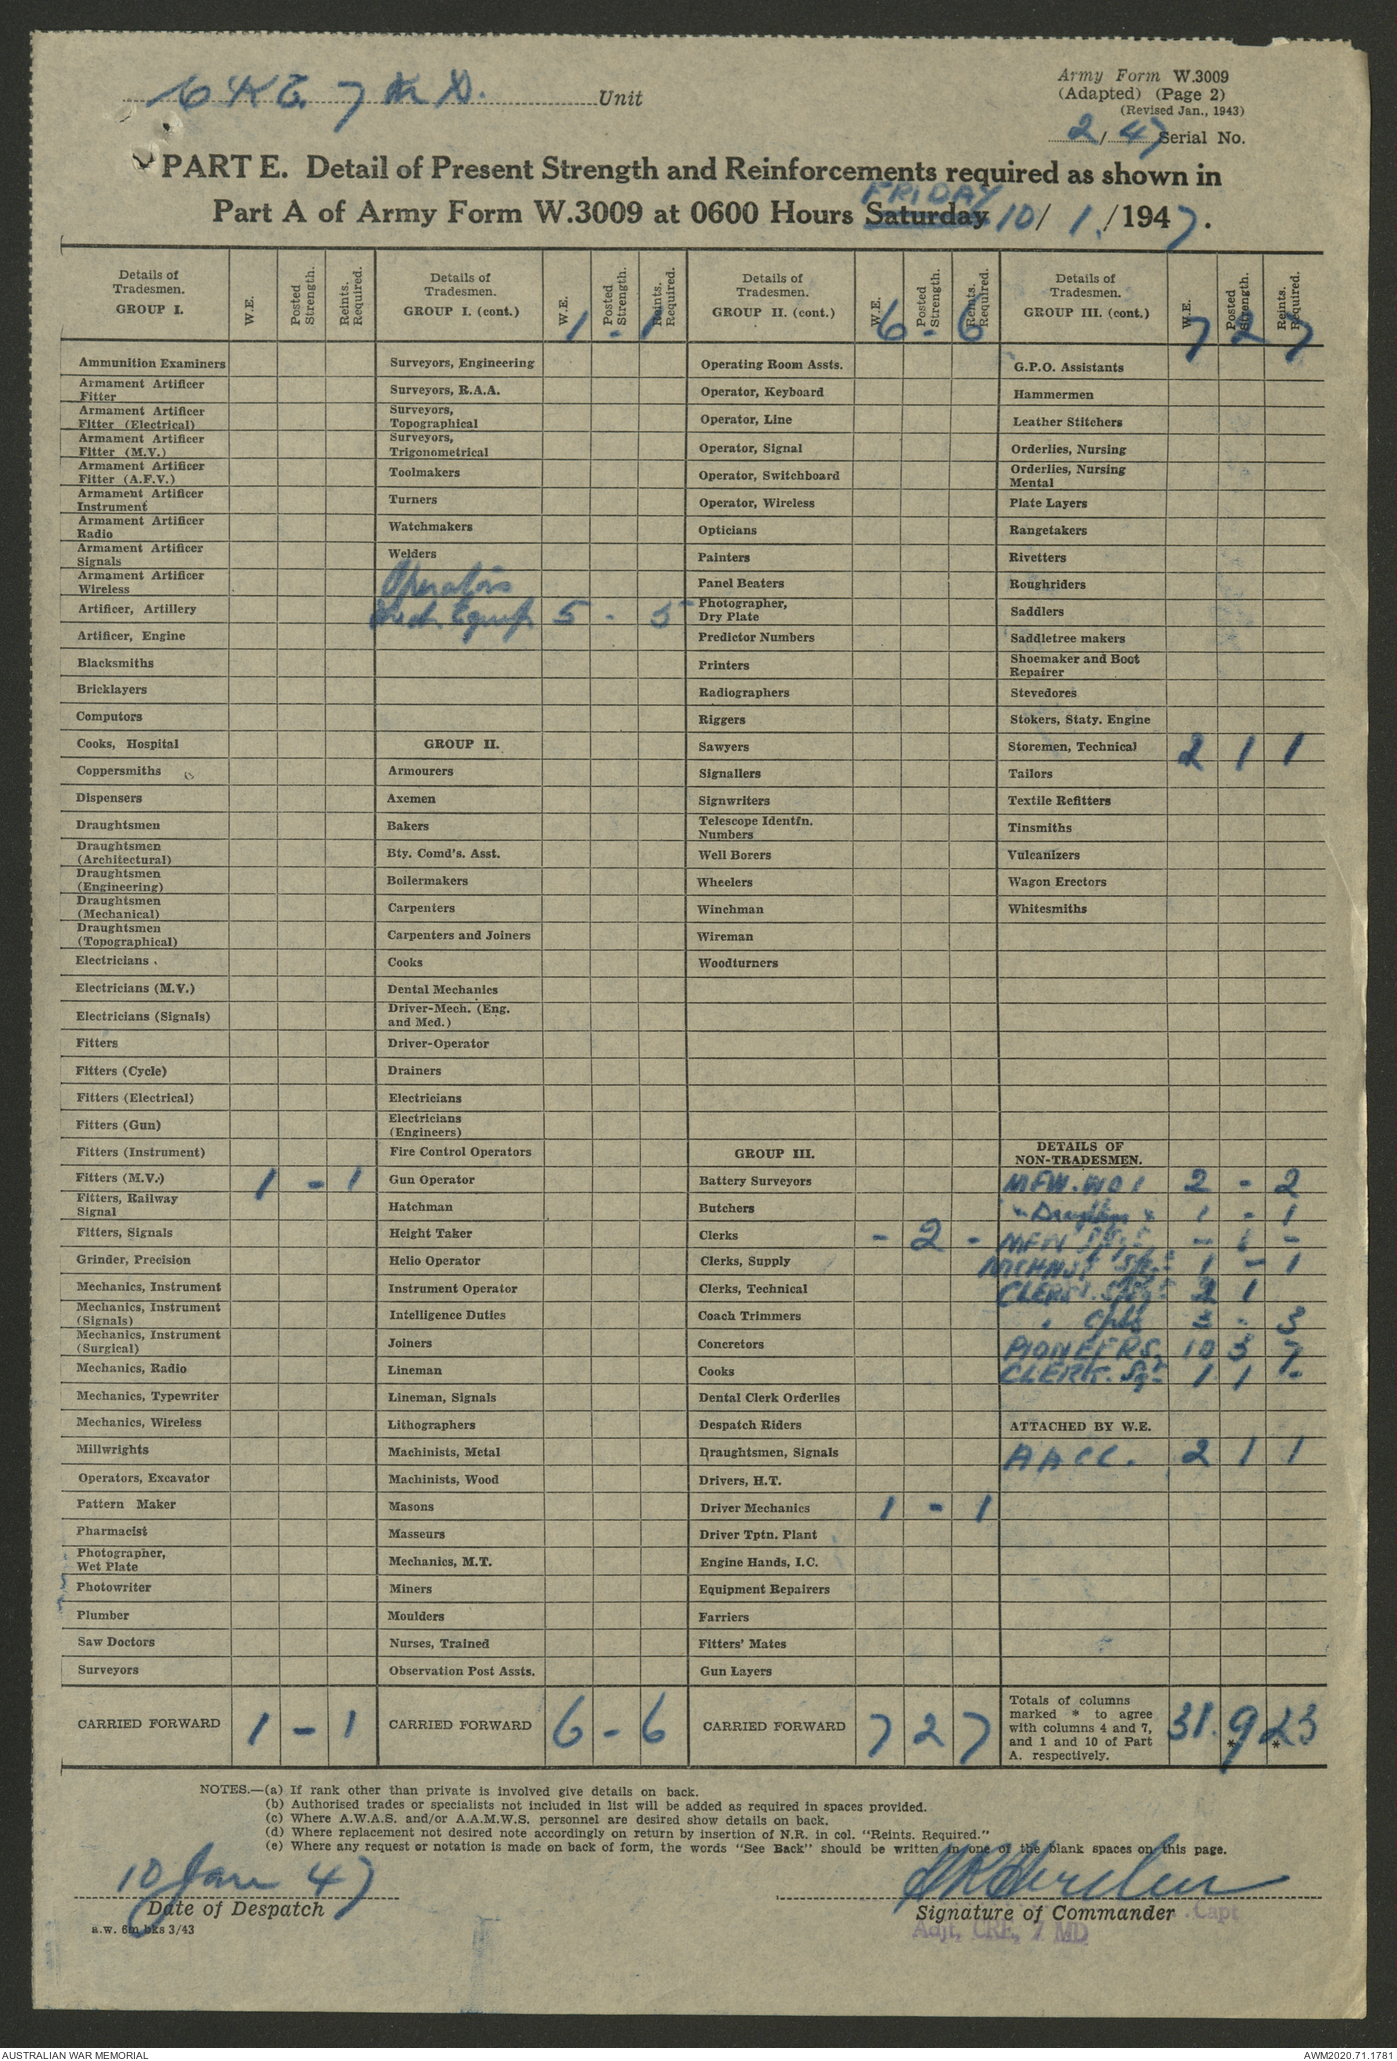 CRE 7 M D. Unit
Army Form W.3009
(Adapted) (Page 2)
(Revised Jan., 1943)
2/47 Serial No.
PART E. Detail of Present Strength and Reinforcements required as shown in
FRIDAY
Part A of Army Form W.3009 at 0600 Hours Saturday 10/ 1./1947.
Details of Tradesmen. GROUP I. W.E. Posted Strength. Reints. Required.
Ammunition Examiners
Armament Artificer Fitter
Armament Artificer Fitter (Electrical)
Armament Artificer Fitter (M.V.)
Armament Artificer Fitter (A.F.V.)
Armament Artificer Instrument
Armament Artificer Radio
Armament Artificer Signals
Armament Artificer Wireless
Artificer, Artillery
Artificer, Engine
Blacksmiths
Bricklayers
Computors
Cooks, Hospital
Coppersmiths
Dispensers
Draughtsmen
Draughtsmen (Architectural)
Draughtsmen (Engineering)
Draughtsmen (Mechanical)
Draughtsmen (Topographical)
Electricians
Electricians (M.V.)
Electricians (Signals)
Fitters
Fitters (Cycle)
Fitters (Electrical)
Fitters (Gun)
Fitters (Instrument)
Fitters (M.V.) 1 - 1
Fitters, Railway Signal
Fitters, Signals
Grinder, Precision
Mechanics, Instrument
Mechanics, Instrument (Signals)
Mechanics, Instrument (Surgical)
Mechanics, Radio
Mechanics, Typewriter
Mechanics, Wireless
Millwrights
Operators, Excavator
Pattern Maker
Pharmacist
Photographer, Wet Plate
Photowriter
Plumber
Saw Doctors
Surveyors
CARRIED FORWARD 1 - 1
Details of Tradesmen. GROUP I. (cont.) W.E. Posted Strength. Reints. Required. 1 - 1
Surveyors, Engineering
Surveyors, R.A.A.
Surveyors, Topographical
Surveyors, Trigonometrical
Toolmakers
Turners
Watchmakers
Welders
Operators
Mech. Equip. 5 - 5
GROUP II.
Armourers
Axemen
Bakers
Bty. Comd's. Asst.
Boilermakers
Carpenters
Carpenters and Joiners
Cooks
Dental Mechanics
Driver-Mech. (Eng. and Med.)
Driver-Operator
Drainers
Electricians
Electricians (Engineers)
Fire Control Operators
Gun Operator
Hatchman
Height Taker
Helio Operator
Instrument Operator
Intelligence Duties
Joiners
Lineman
Lineman, Signals
Lithographers
Machinists, Metal
Machinists, Wood
Masons
Masseurs
Mechanics, M.T.
Miners
Moulders
Nurses, Trained
Observation Post Assts.
CARRIED FORWARD 6 - 6
Details of Tradesmen. GROUP II. (cont.) W.E. Posted Strength. Reints. Required. 6 - 6
Operating Room Assts.
Operator, Keyboard
Operator, Line
Operator, Signal
Operator, Switchboard
Operator, Wireless
Opticians
Painters
Panel Beaters
Photographer, Dry Plate
Predictor Numbers
Printers
Radiographers
Riggers
Sawyers
Signallers
Signwriters
Telescope Identfn. Numbers
Well Borers
Wheelers
Winchman
Wireman
Woodturners
GROUP III.
Battery Surveyors
Butchers
Clerks - 2 -
Clerks, Supply
Clerks, Technical
Coach Trimmers
Concretors
Cooks
Dental Clerk Orderlies
Despatch Riders
Draughtsmen, Signals
Drivers, H.T.
Driver Mechanics 1 - 1
Driver Tptn. Plant
Engine Hands, I.C.
Equipment Repairers
Farriers
Fitters' Mates
Gun Layers
CARRIED FORWARD 7 2 7
Details of Tradesmen. GROUP III. (cont.) W.E. Posted Strength. Reints. Required. 7 2 7
G.P.O. Assistants
Hammermen
Leather Stitchers
Orderlies, Nursing
Orderlies, Nursing Mental
Plate Layers
Rangetakers
Rivetters
Roughriders
Saddlers
Saddletree makers
Shoemaker and Boot Repairer
Stevedores
Stokers, Staty. Engine
Storemen, Technical 2 1 1
Tailors
Textile Refitters
Tinsmiths
Vulcanizers
Wagon Erectors
Whitesmiths
DETAILS OF NON-TRADESMEN.
MFW. WO1 2 - 2
" 1 - 1
MFW - 1 -
1 - 1
CLERK. 2 1
" Cpls 3 - 3
PIONEERS. 10 3 7
CLERK. Sgt 1 1 -
ATTACHED BY W.E.
AACC. 2 1 1
Totals of columns marked * to agree with columns 4 and 7, and 1 and 10 of Part A. respectively. 31. 9* 23*
NOTES.—(a) If rank other than private is involved give details on back.
(b) Authorised trades or specialists not included in list will be added as required in spaces provided.
(c) Where A.W.A.S. and/or A.A.M.W.S. personnel are desired show details on back.
(d) Where replacement not desired note accordingly on return by insertion of N.R. in col. "Reints. Required."
(e) Where any request or notation is made on back of form, the words "See Back" should be written in one of the blank spaces on this page.
10 Jan 47
Date of Despatch
Signature of Commander Capt
Adjt, CRE, 7 MD
a.w. 6m bks 3/43
AUSTRALIAN WAR MEMORIAL
AWM2020.71.1781